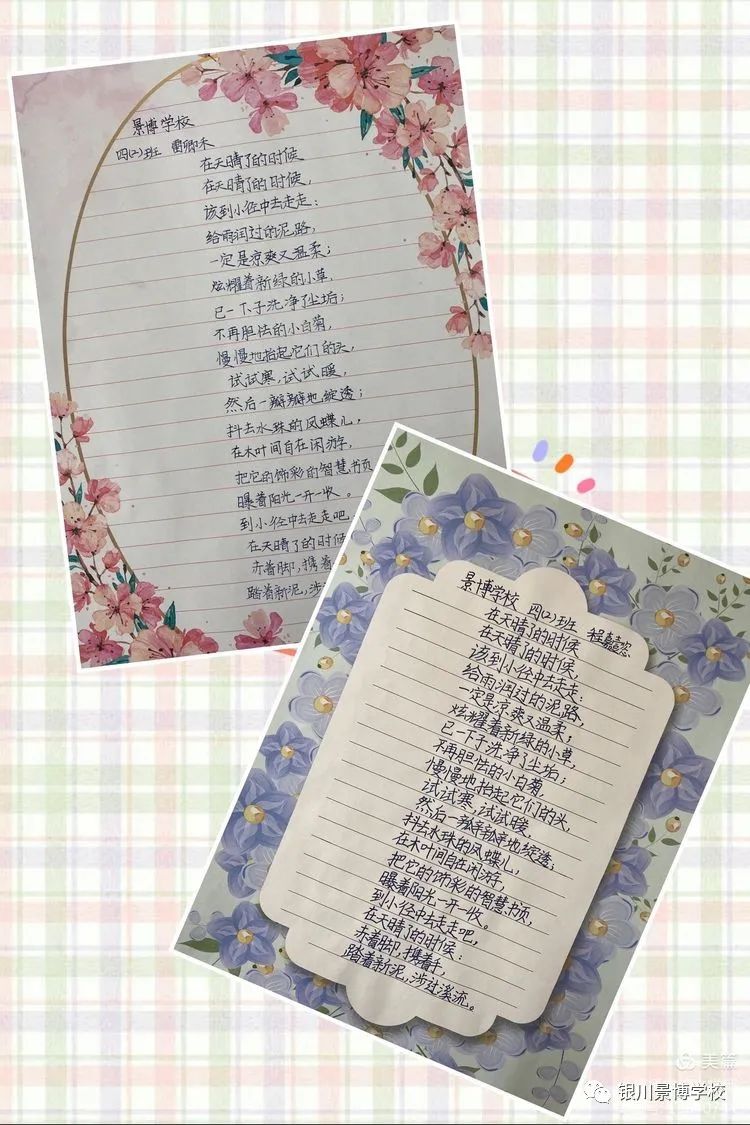 景博学校
四(2)班 雷卿禾
在天晴了的时候
在天晴了的时候,
该到小径中去走走:
给雨润过的泥路,
一定是凉爽又温柔;
炫耀着新绿的小草,
已一下子洗净了尘垢;
不再胆怯的小白菊,
慢慢地抬起它们的头,
试试寒,试试暖,
然后一瓣瓣地绽透;
抖去水珠的凤蝶儿,
在木叶间自在闲游,
把它的饰彩的智慧书页
曝着阳光一开一收。
到小径中去走走吧,
在天晴了的时候
赤着脚,携着
踏着新泥,涉
景博学校 四(2)班 程
在天晴了的时候
在天晴了的时候,
该到小径中去走走:
给雨润过的泥路,
一定是凉爽又温柔;
炫耀着新绿的小草,
已一下子洗净了尘垢;
不再胆怯的小白菊,
慢慢地抬起它们的头,
试试寒,试试暖,
然后一瓣瓣地绽透;
抖去水珠的凤蝶儿,
在木叶间自在闲游,
把它的饰彩的智慧书页,
曝着阳光一开一收。
到小径中去走走吧,
在天晴了的时候:
赤着脚,携着手,
踏着新泥,涉过溪流。
美篇
银川景博学校